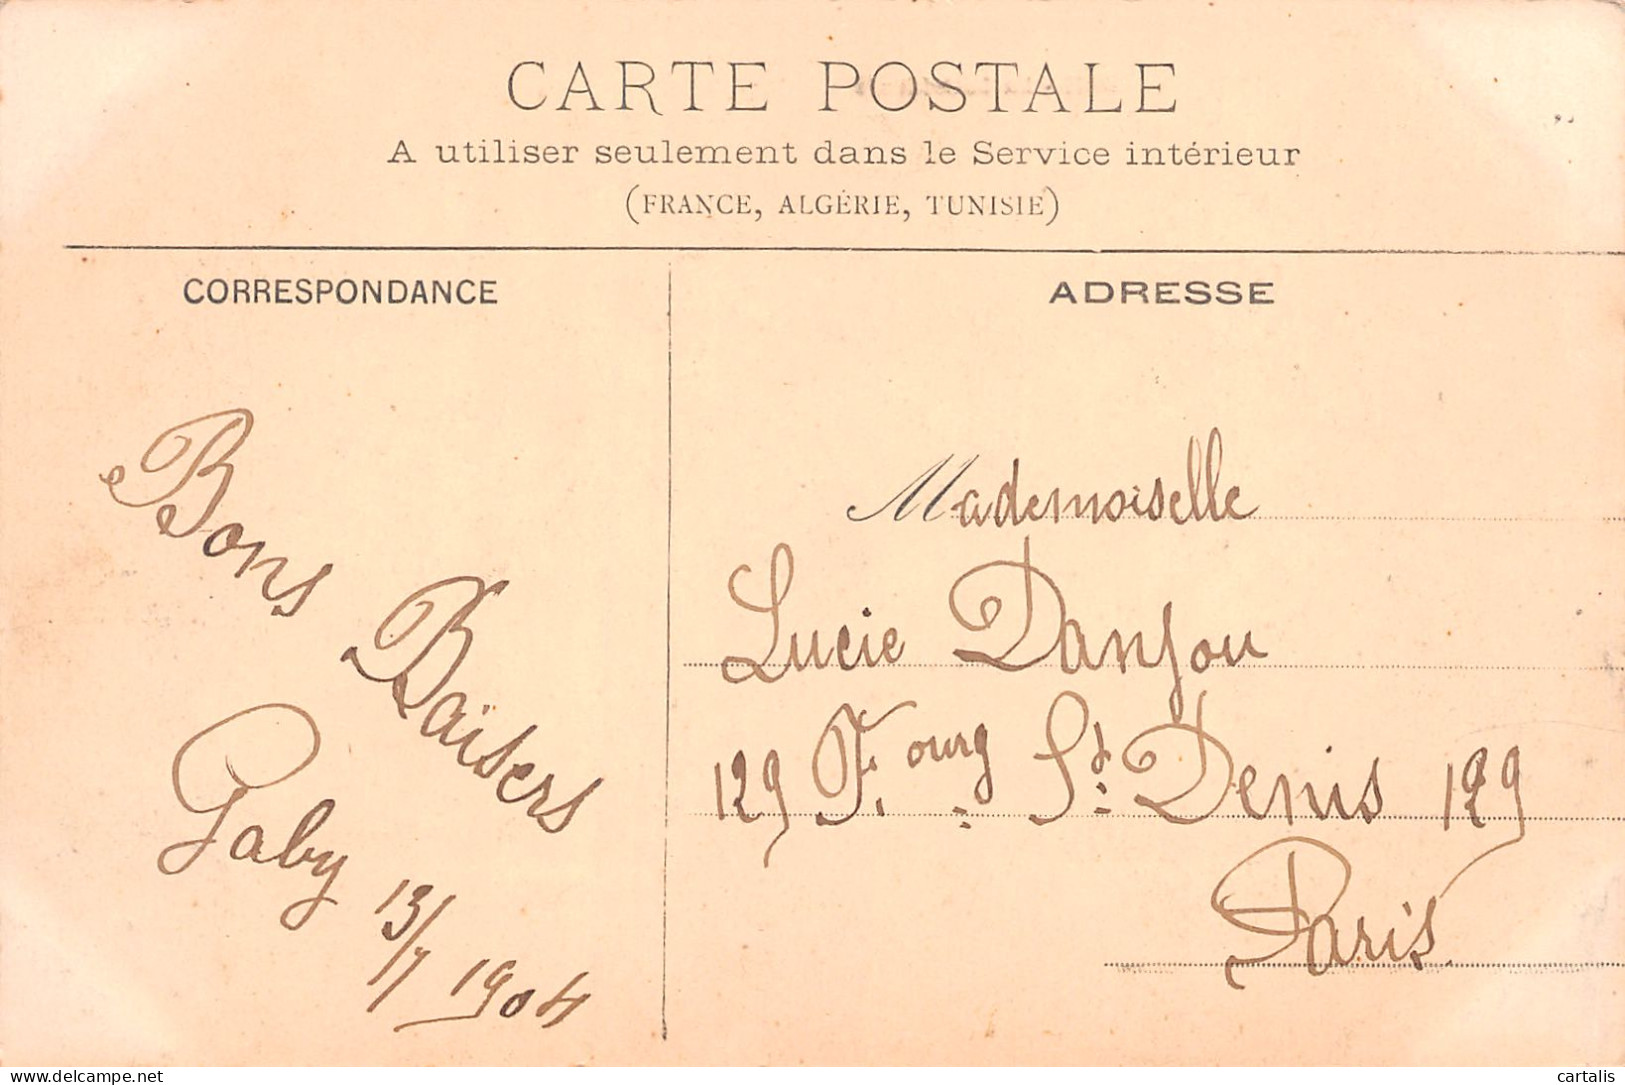 CARTE POSTALE
A utiliser seulement dans le Service intérieur
(FRANCE, ALGÉRIE, TUNISIE)
CORRESPONDANCE
ADRESSE
Bons Baisers
Gaby
13/7 1904
Mademoiselle
Lucie Danjou
129 F. ourg St Denis 129
Paris
delcampe.net
cartalis